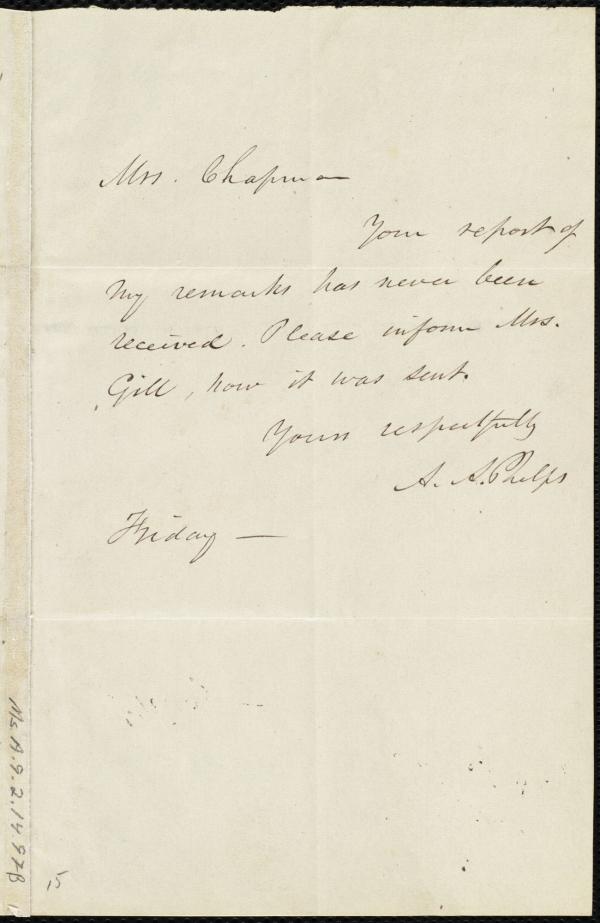 Mrs. Chapman
Your report of
my remarks has never been
received. Please inform Mrs.
Gill, how it was sent.
Yours respectfully
A. A. Phelps
Friday —
15
Ms.A.9.2.14